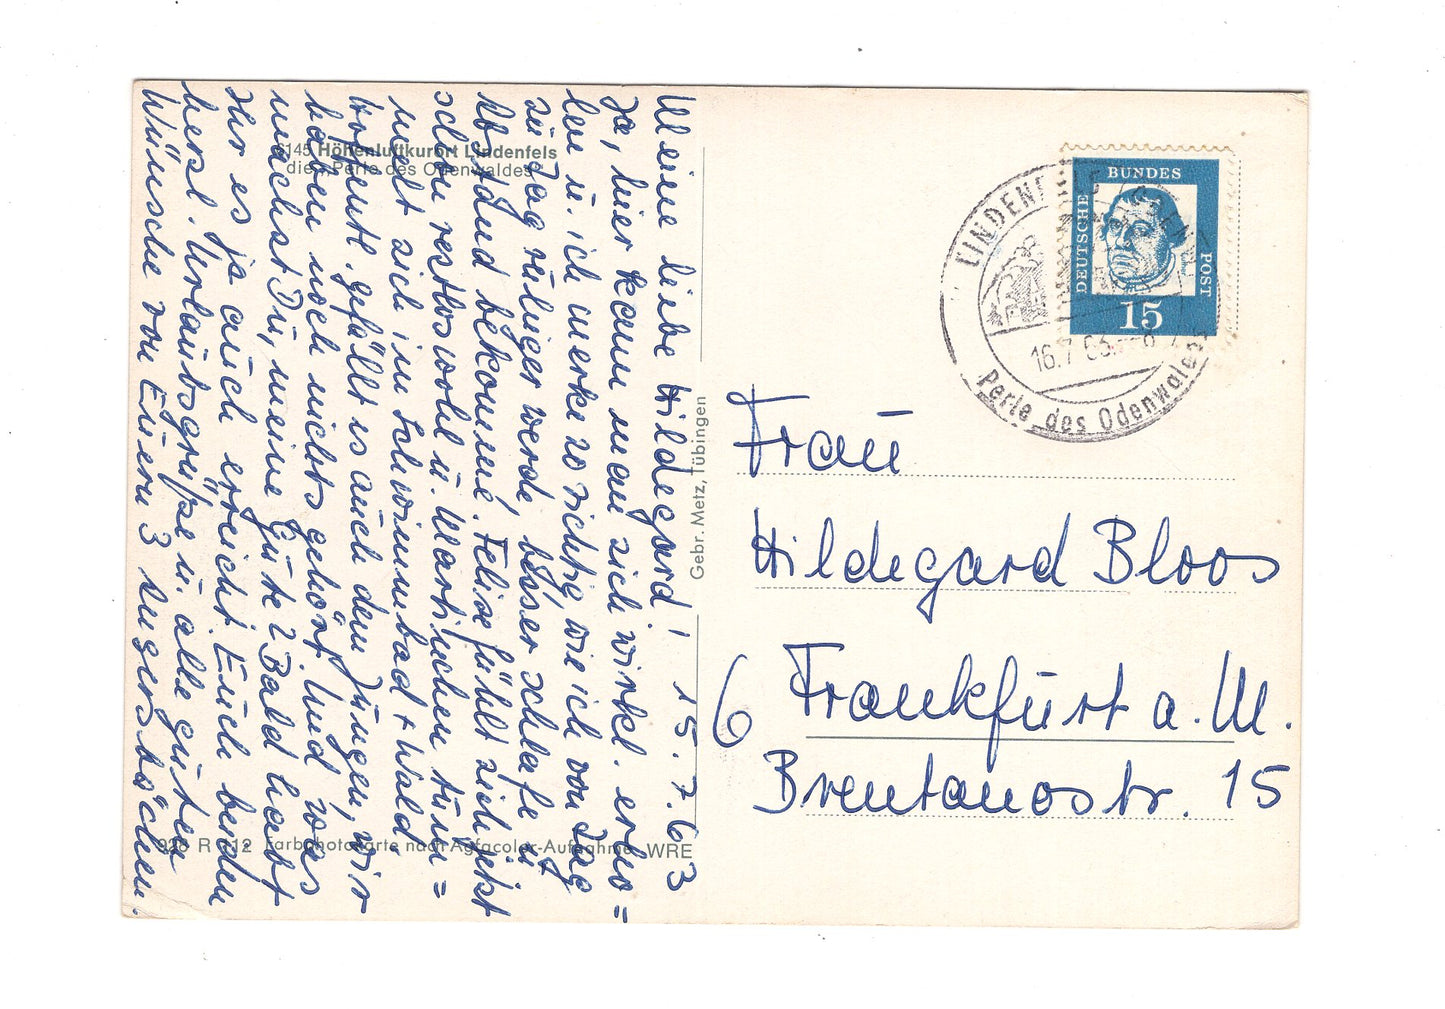 Meine liebe Hildegard! 15.7.63
Ja, hier kann man sich wirkl. erho=
len u. ich merke so richtig wie ich von Tag
zu Tag ruhiger werde, besser schlafe u.
Abstand bekomme. Felix fühlt sich jetzt
schon restlos wohl u. Martinchen tum=
melt sich im Schwimmbad + Wald.
Hoffentl. gefällt es auch dem Jungen, wir
haben noch nichts gehört. Und was
machst Du, meine Gute? Bald habt
Ihr es ja auch erreicht. Euch beiden
herzl. Urlaubsgrüße u. alle guten
Wünsche von Euern 3
6145 Höhenluftkurort Lindenfels
die „Perle des Odenwaldes"
928 R 112 Farbphotokarte nach Agfacolor-Aufnahme WRE
Gebr. Metz, Tübingen
DEUTSCHE
BUNDES
POST
15
LINDENFELS
16.7.63
Perle des Odenwaldes
Frau
Hildegard Bloos
6 Frankfurt a. M.
Brentanostr. 15